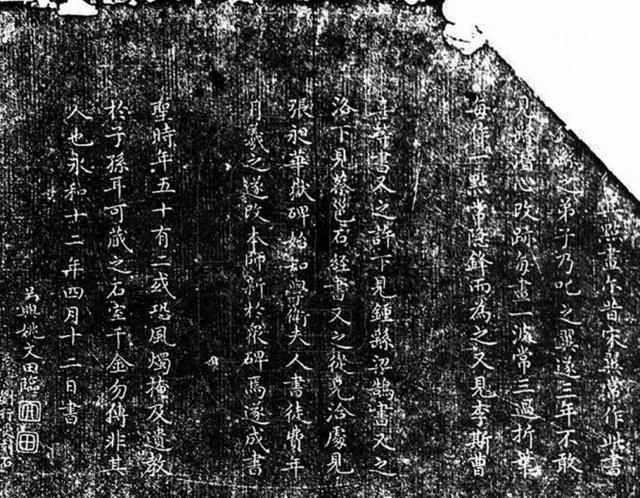 點畫尓昔宋翼常作此書
繇之弟子乃叱之翼遂三年不敢
見繇潛心改跡每畫一波常三過折筆
每作一點常隱鋒而為之又見李斯曹
喜等書又之許下見鍾繇梁鵠書又之
洛下見蔡邕石經書又之從兄洽處見
張昶華嶽碑始知學衛夫人書徒費年
月羲之遂改本師新於衆碑焉遂成書
聖時年五十有二或恐風燭掩及遺教
於子孫耳可藏之石室千金勿傳非其
人也永和十二年四月十二日書
吳興姚文田臨